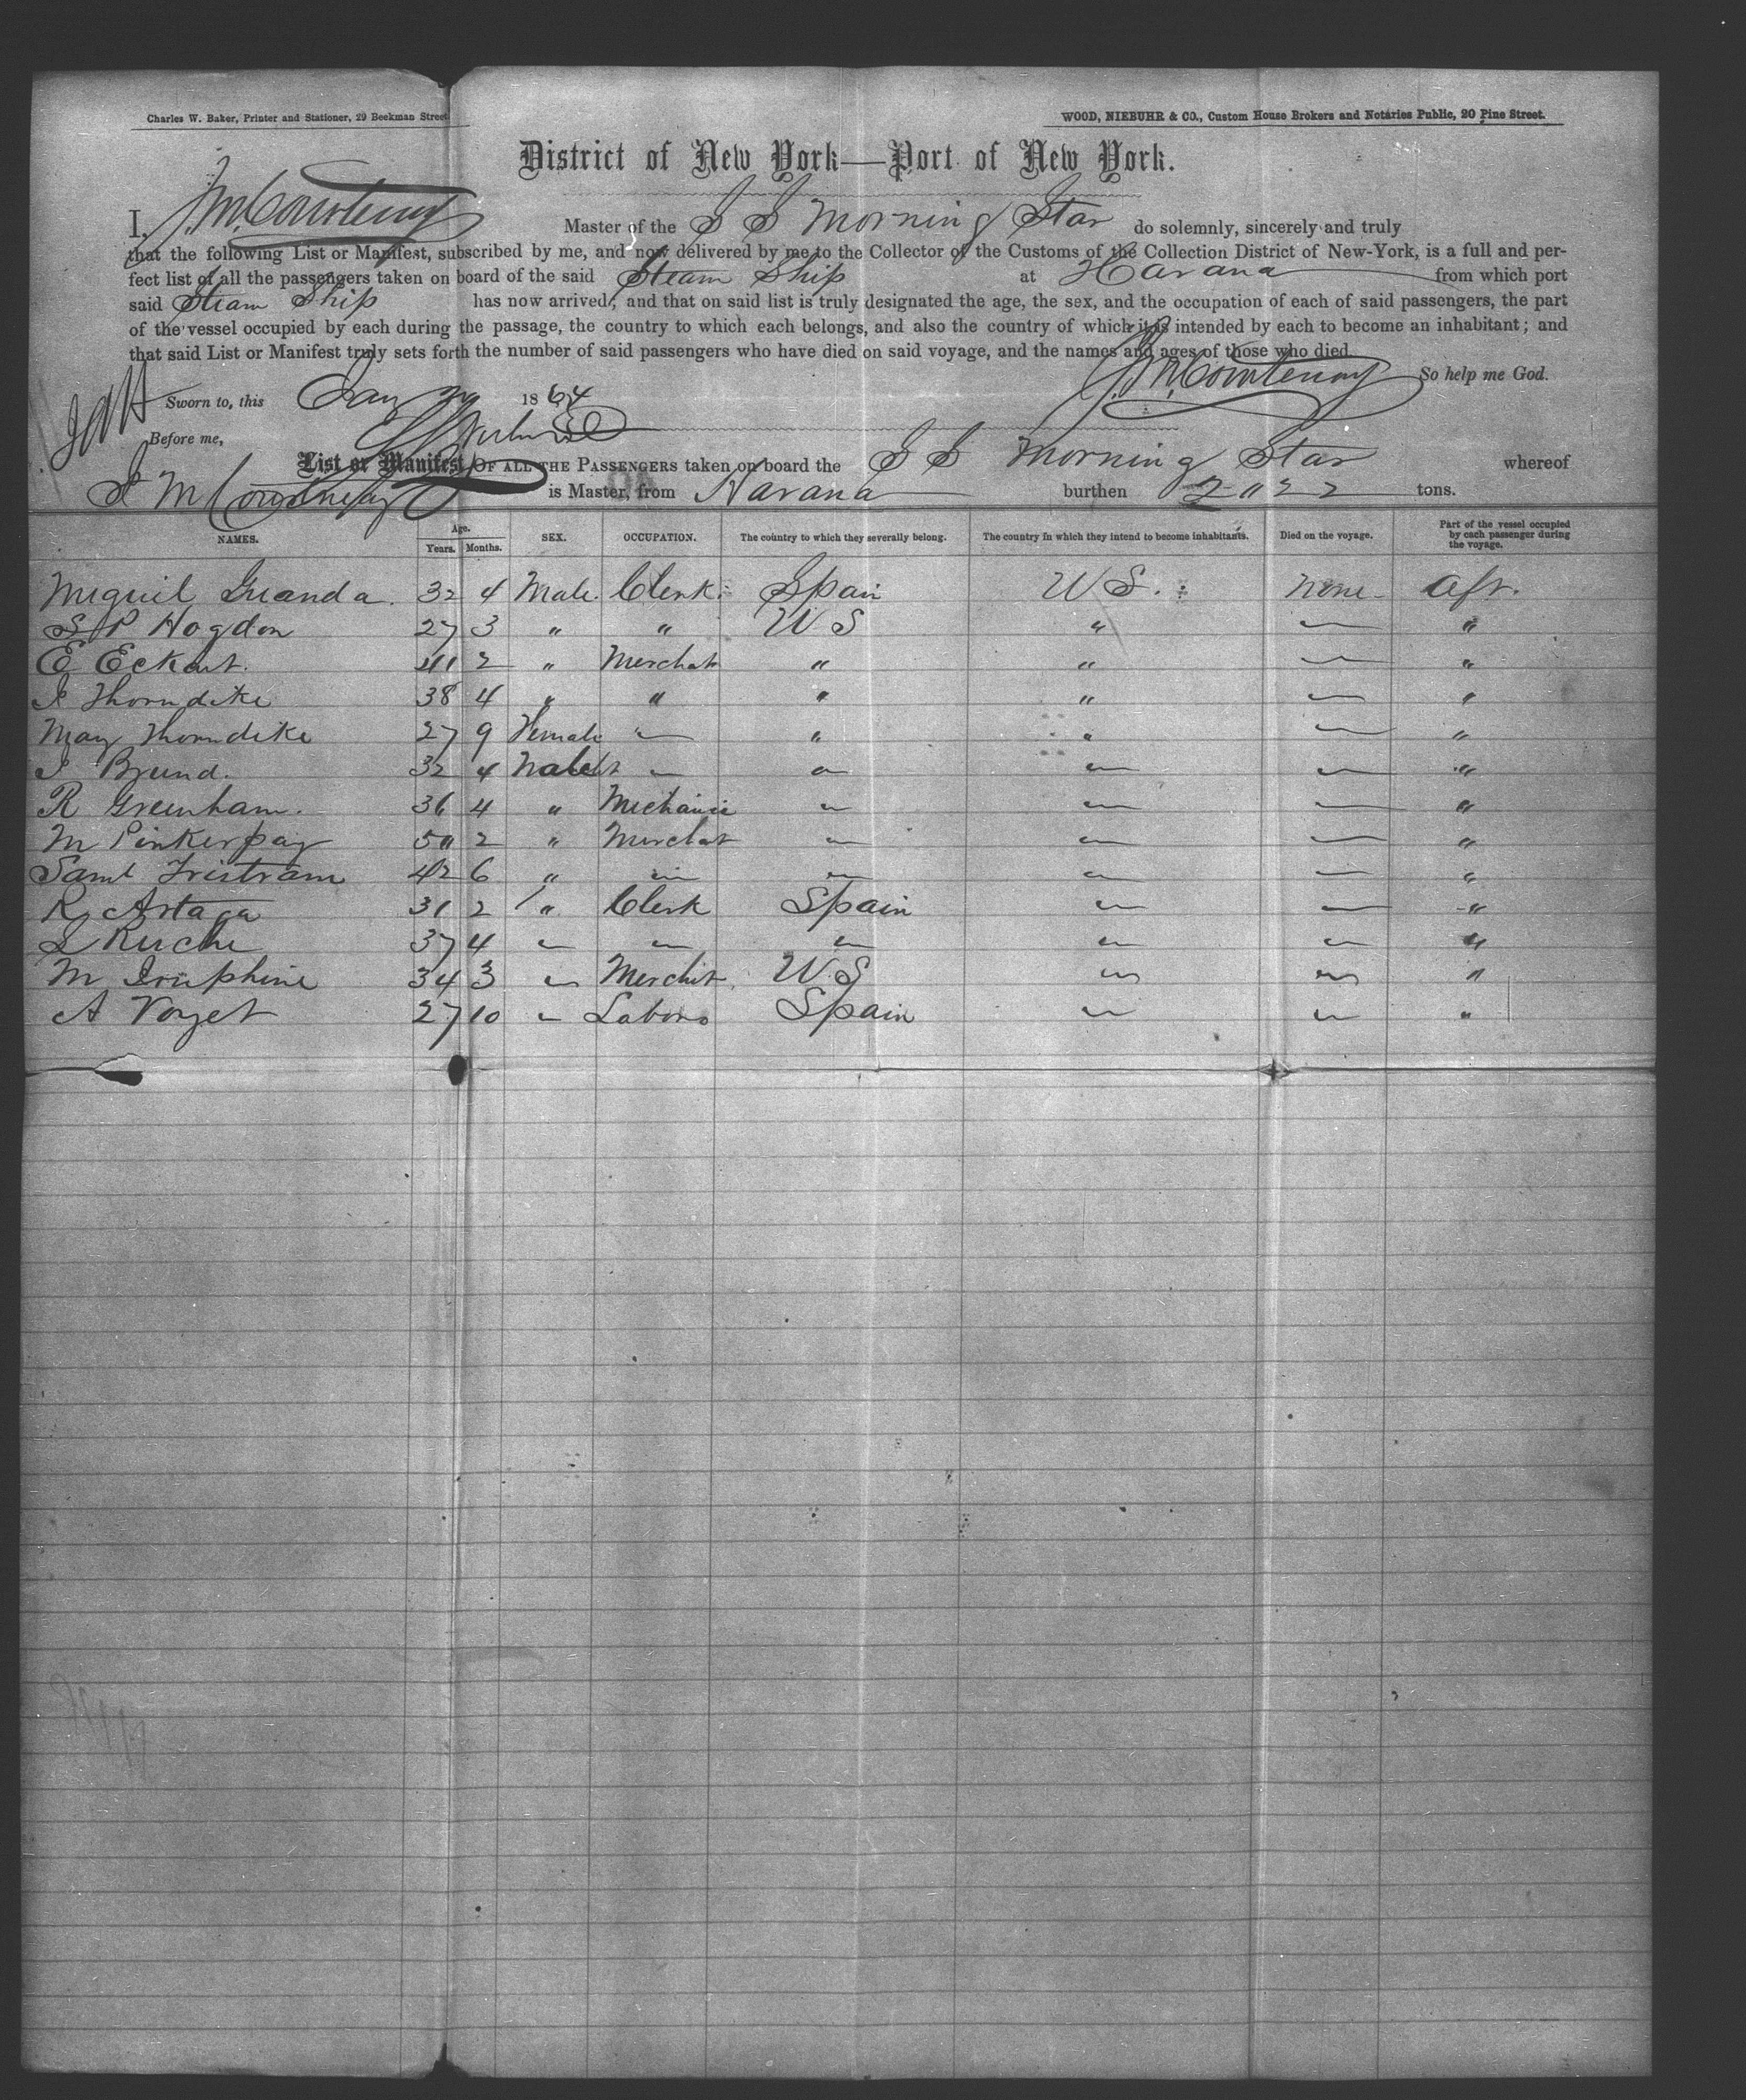 Charles W. Baker, Printer and Stationer, 29 Beekman Street
WOOD, NIEBUHR & CO., Custom House Brokers and Notaries Public, 20 Pine Street.
District of New York—Port of New York.
I, J. M. Courtenay Master of the S S Morning Star do solemnly, sincerely and truly
that the following List or Manifest, subscribed by me, and now delivered by me to the Collector of the Customs of the Collection District of New-York, is a full and per-
fect list of all the passengers taken on board of the said Steam Ship at Havana from which port
said Steam Ship has now arrived, and that on said list is truly designated the age, the sex, and the occupation of each of said passengers, the part
of the vessel occupied by each during the passage, the country to which each belongs, and also the country of which it is intended by each to become an inhabitant; and
that said List or Manifest truly sets forth the number of said passengers who have died on said voyage, and the names and ages of those who died.
J. M. Courtenay So help me God.
Sworn to, this Jan 1864
Before me,
List or Manifest OF ALL THE PASSENGERS taken on board the S S Morning Star whereof
J M Courtenay is Master, from Havana burthen 2022 tons.
NAMES. Age. Years. Months. SEX. OCCUPATION. The country to which they severally belong. The country in which they intend to become inhabitants. Died on the voyage. Part of the vessel occupied by each passenger during the voyage.
Miguil Guanda. 32 4 Male. Clerk. Spain U S. None Aft.
S P Hogdon 27 3 " " U S " — "
E Eckart. 41 2 " Merchat " " — "
J Thorndike 38 4 " " " " — "
May Thorndike 27 9 Female — " " — "
J Brund. 32 4 Male — — — — "
R Greenham. 36 4 " Mechanic — — — "
M Pinkerpay 50 2 " Merchat — — — "
Saml Tristram 42 6 " — — — — "
R Astaga 31 2 " Clerk Spain — — "
L Ruche 37 4 — — — — — "
M 34 3 — Merchat U.S — — "
A Voyet 27 10 — Labors Spain — — "